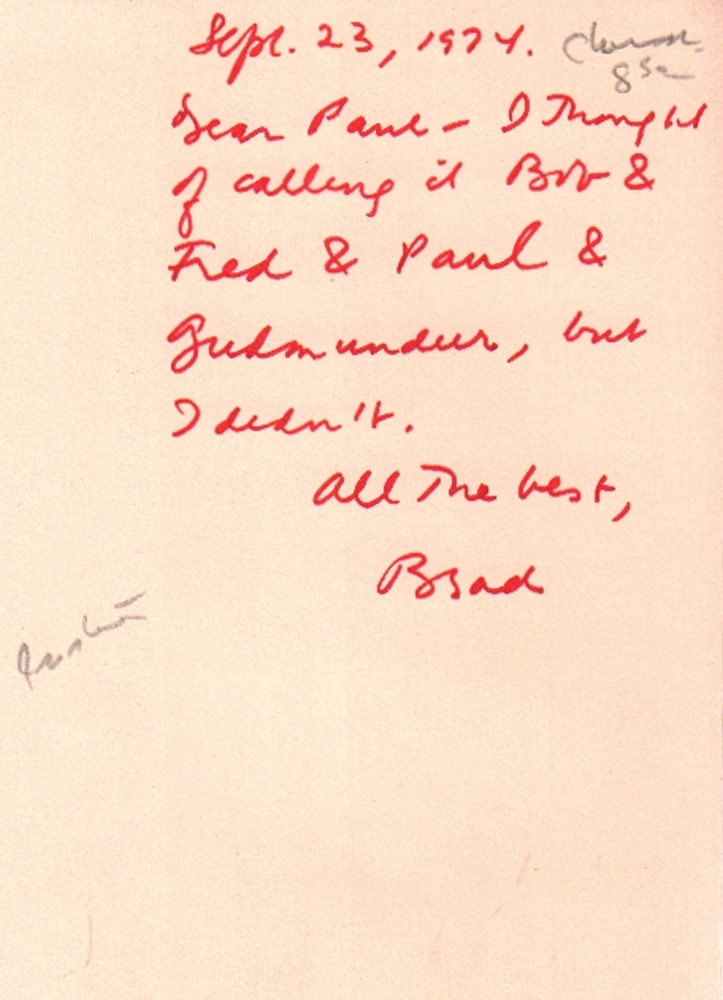 Sept. 23, 1974.
Dear Paul - I thought
of calling it Bob &
Fred & Paul &
Gudmundur, but
I didn't.
All the best,
Brad